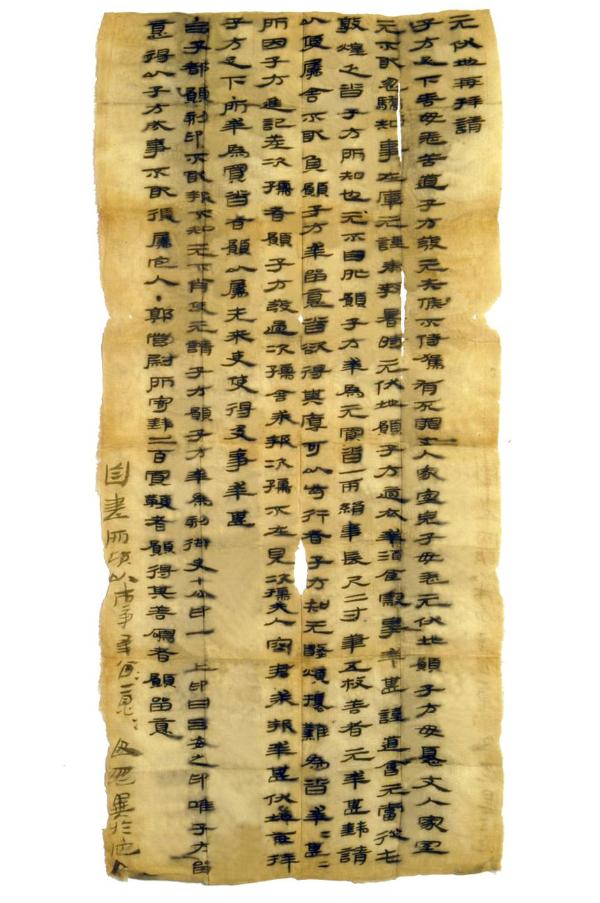 元伏地再拜請
子方足下善毋恙苦道子方發元失候不侍駕有死罪丈人家室兒子毋恙元伏地願子方毋憂丈人家室
元不敢忽驕知事在庫元謹奉教暑時元伏地願子方適衣幸酒食察事幸甚謹道會元當從屯
敦煌乏沓子方所知也元不自外願子方幸為元買沓一兩絹韋長尺二寸筆五枚善者元幸甚錢請
以便屬舍不敢負願子方幸留意沓欲得其厚可以步行者子方知元數煩擾難為沓幸〓甚〓
所因子方進記差次孺者願子方發過次孺舍求報次孺不在見次孺夫人容君求報幸甚伏地再拜
子方足下所幸為買沓者願以屬先來吏使得及事幸甚
吕子都願刻印不敢報不知元不肖使元請子方願子方幸為刻御史七分印一龜上印曰吕安之印唯子方留
意得以子方成事不敢復屬它人·郭營尉所寄錢二百買鞭者願得其善鳴者願留意
自書所願以市事幸留〓意〓毋忽異於它人